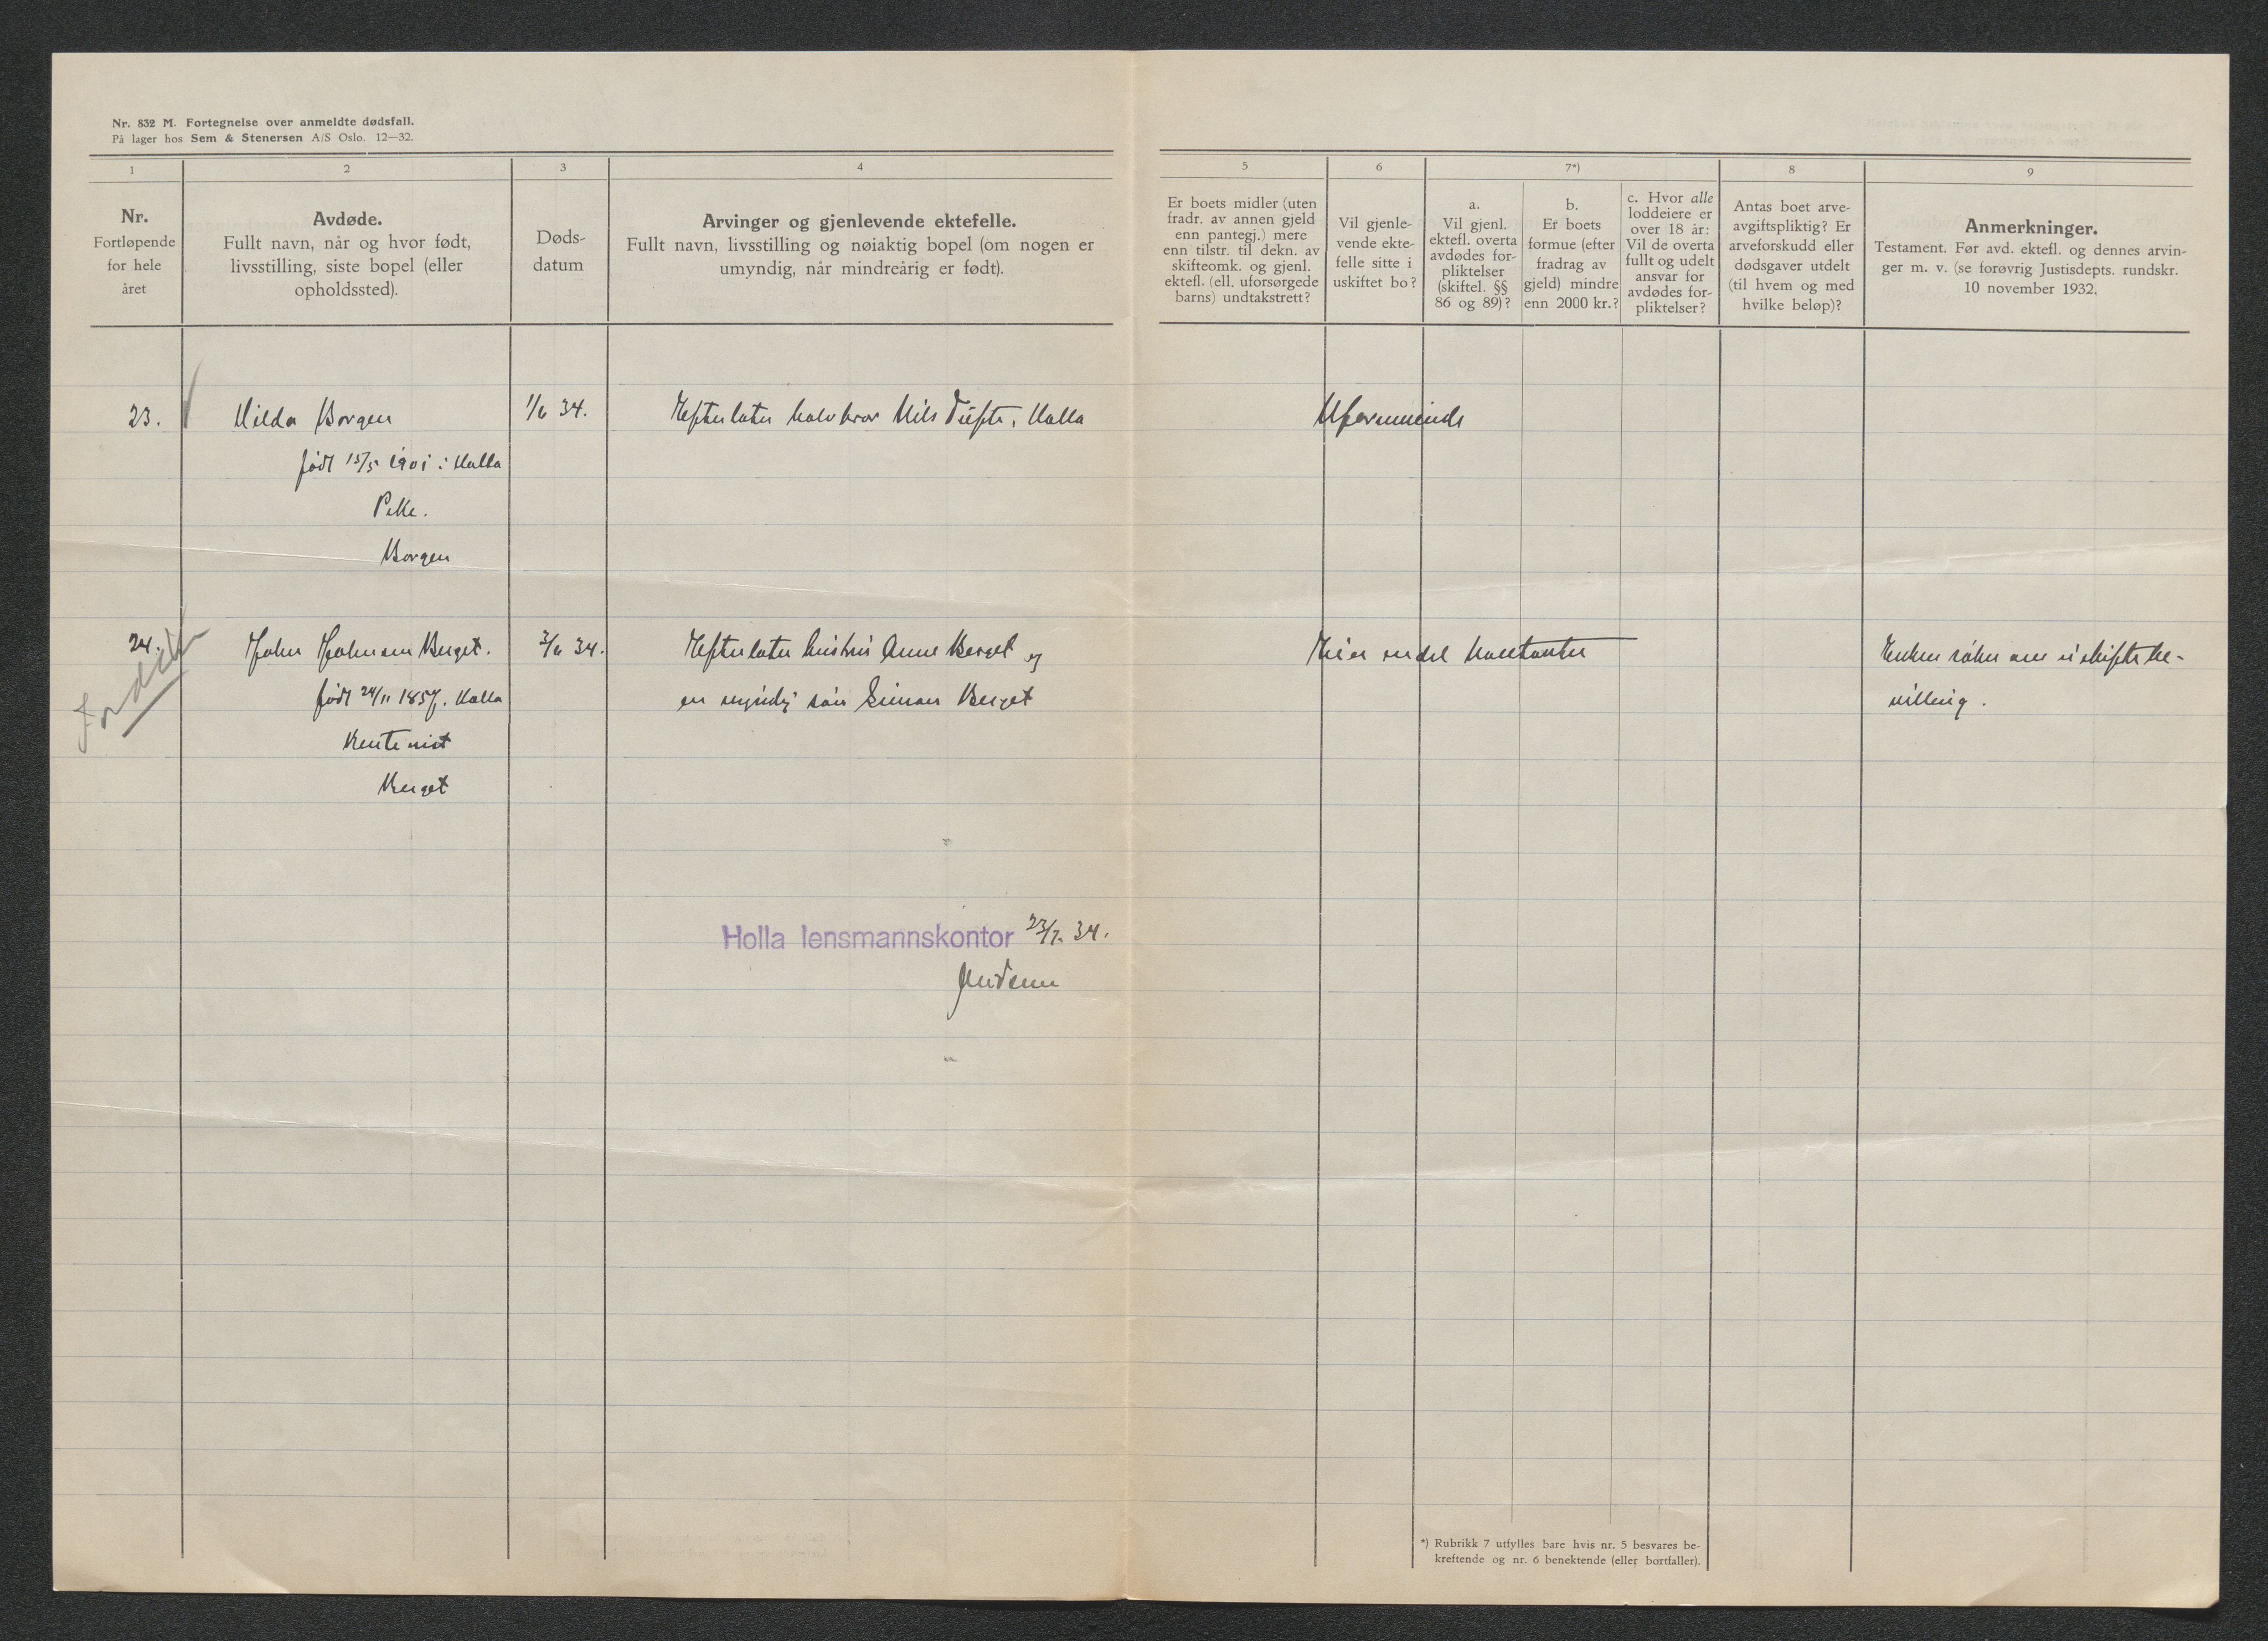 Nr. 832 M. Fortegnelse over anmeldte dødsfall.
På lager hos Sem & Stenersen A/S Oslo. 12—32.
1
2
3
4
5
6
7*)
8
9
Nr.
Fortløpende
for hele
året
Avdøde.
Fullt navn, når og hvor født,
livsstilling, siste bopel (eller
opholdssted).
Døds-
datum
Arvinger og gjenlevende ektefelle.
Fullt navn, livsstilling og nøiaktig bopel (om nogen er
umyndig, når mindreårig er født).
Er boets midler (uten
fradr. av annen gjeld
enn pantegj.) mere
enn tilstr. til dekn. av
skifteomk. og gjenl.
ektefl. (ell. uforsørgede
barns) undtakstrett?
Vil gjenle-
vende ekte-
felle sitte i
uskiftet bo?
a.
Vil gjenl.
ektefl. overta
avdødes for-
pliktelser
(skiftel. §§
86 og 89)?
b.
Er boets
formue (efter
fradrag av
gjeld) mindre
enn 2000 kr.?
c. Hvor alle
loddeiere er
over 18 år:
Vil de overta
fullt og udelt
ansvar for
avdødes for-
pliktelser?
Antas boet arve-
avgiftspliktig? Er
arveforskudd eller
dødsgaver utdelt
(til hvem og med
hvilke beløp)?
Anmerkninger.
Testament. Før avd. ektefl. og dennes arvin-
ger m. v. (se forøvrig Justisdepts. rundskr.
10 november 1932.
23. Hilda Borgen 1/6 34. Efterlater halvbror Nils Tufte, Holla
født 15/5 1901 i Holla
Pike.
Borgen
24. John Johnsen Berget. 3/6 34. Efterlater hustru Anne Berget og Eier endel kontanter Enken søker om uskifte be-
født 24/11 1857. Holla en myndig søn Simon Berget villing.
Rentenist
Berget
Holla lensmannskontor 23/7. 34.
*) Rubrikk 7 utfylles bare hvis nr. 5 besvares be-
kreftende og nr. 6 benektende (eller bortfaller).